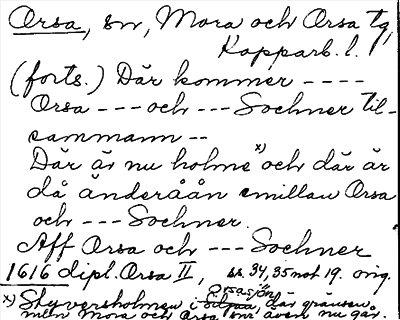 Orsa, sn, Mora och Orsa tg,
Kopparb. l.
(forts.) Där kommer ----
Orsa --- och --- Sochner til-
sammann --
Där är nu holme x) och där är
då änderåån emillan Orsa
och --- Sochner.
Aff Orsa och --- Sochner
1616 dipl. Orsa II, ss. 34, 35 not 19. orig.
x) Styversholmen i Orsasjön, där gränsen
mell. Mora och Orsa snr även nu går.